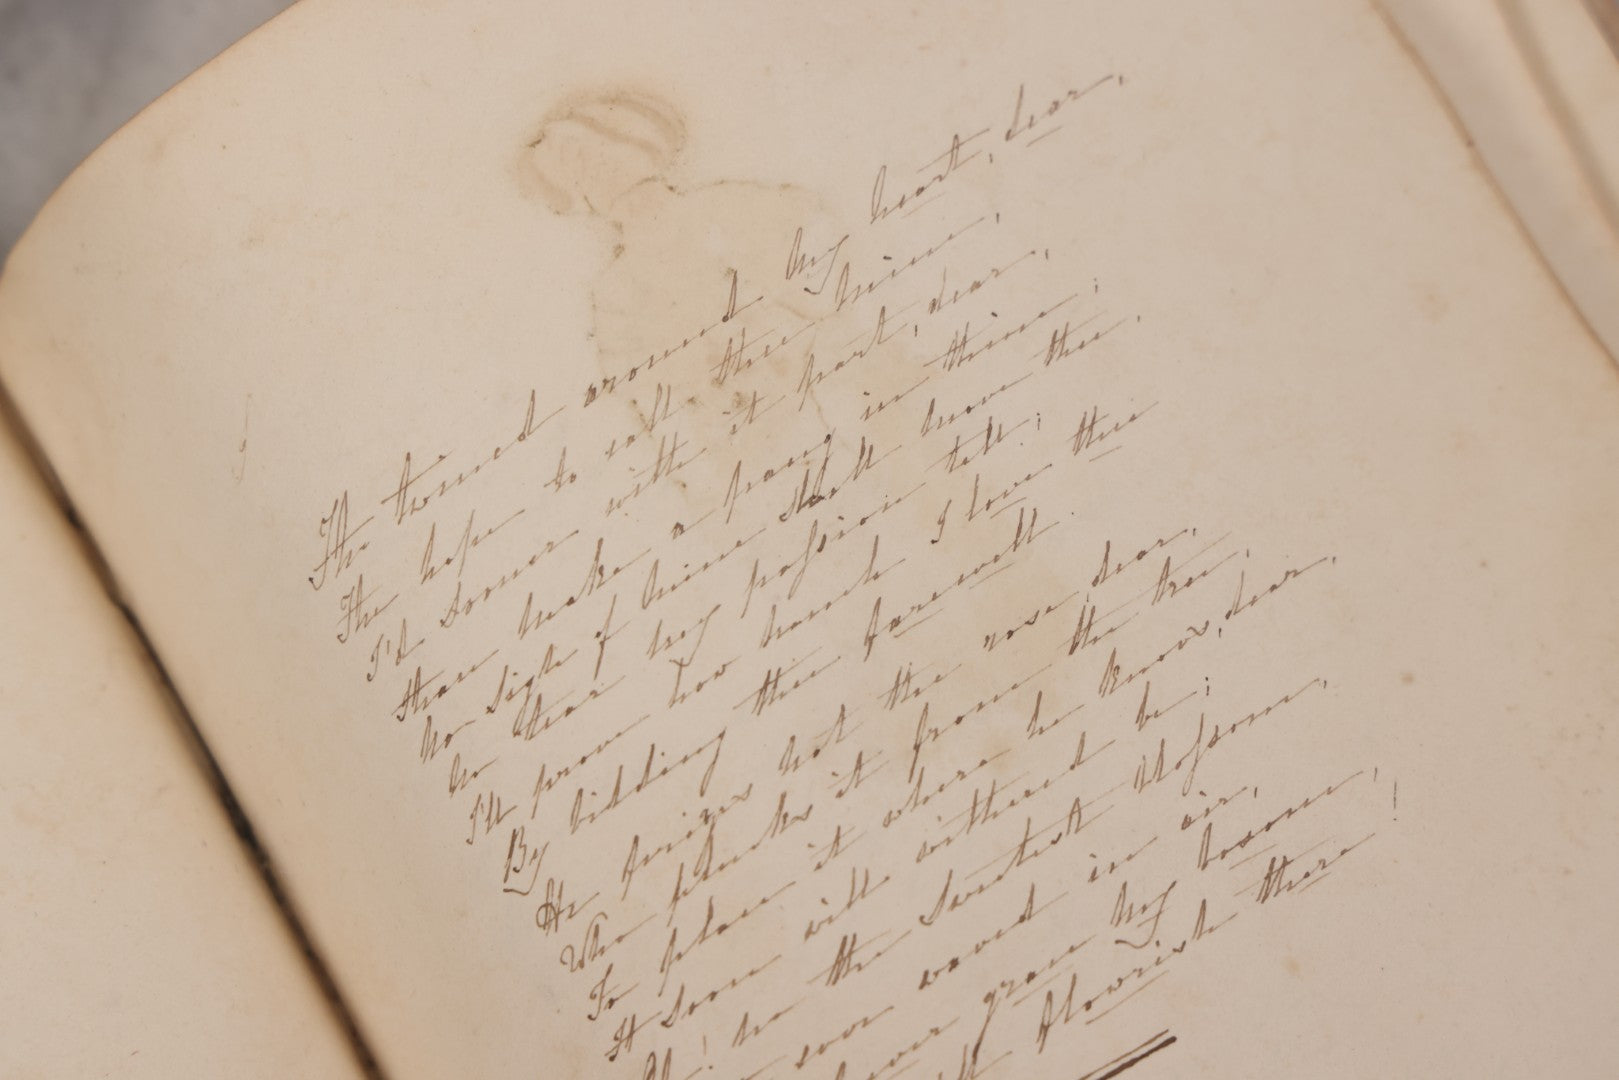 Tho twined around my heart, dear,
The hope to call thee mine,
I'd sooner with it part, dear,
Than make a pang in thine,
No sigh of mine shall move thee,
No tear my passion tell;
I'll prove how much I love thee
By bidding thee farewell.
He prizes not the rose, dear,
Who plucks it from the tree,
To place it where he knows, dear,
It soon will withered be;
Ah! no the sweetest blossom,
ever waved in air,
never grace my bosom,
flourish there!